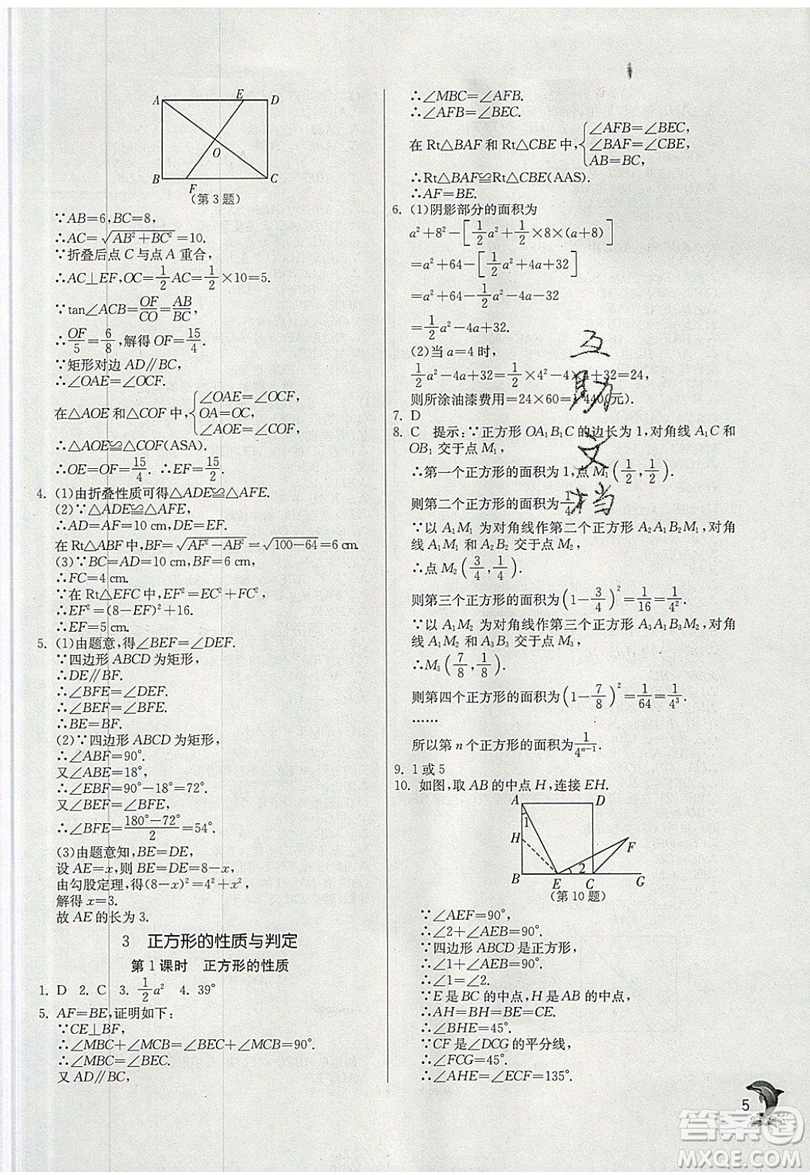 A E D
O
B F C
(第3题)
∵AB=6,BC=8,
∴AC=√(AB²+BC²)=10.
∵折叠后点C与点A重合,
∴AC⊥EF,OC=1/2AC=1/2×10=5.
∵tan∠ACB=OF/CO=AB/BC,
∴OF/5=6/8,解得OF=15/4.
∵矩形对边AD∥BC,
∴∠OAE=∠OCF.
在△AOE和△COF中,{∠OAE=∠OCF, OA=OC, ∠AOE=∠COF,
∴△AOE≌△COF(ASA).
∴OE=OF=15/4.∴EF=15/2.
4. (1)由折叠性质可得△ADE≌△AFE.
(2)∵△ADE≌△AFE,
∴AD=AF=10 cm,
在Rt△ABF中,BF=√(AF²-AB²)=√(100-64)=6 cm.
(3)∵BC=AD=10 cm,BF=6 cm,
∴FC=4 cm.
∵在Rt△EFC中,EF²=EC²+FC²,
∴EF²=(8-EF)²+16.
∴EF=5 cm.
5. (1)由题意,得∠BEF=∠DEF.
∵四边形ABCD为矩形,
∴DE∥BF.
∴∠BFE=∠DEF.
∴∠BEF=∠BFE.
∴BE=BF.
(2)∵四边形ABCD为矩形,
∴∠ABF=90°.
又∠ABE=18°,
∴∠EBF=90°-18°=72°.
又BE=BF,
∴∠BFE=(180°-72°)/2=54°.
(3)由题意知,BE=DE,
设AE=x,则BE=DE=8-x,
由勾股定理,得(8-x)²=4²+x²,
解得x=3.
故AE的长为3.
3 正方形的性质与判定
第1课时 正方形的性质
1. D 2. C 3. 1/2a² 4. 39°
5. AF=BE,证明如下:
∵CE⊥BF,
∴∠MBC+∠BEC=∠MBC+∠MCB=90°.
∴∠MCB=∠BEC.
又AD∥BC,
∴∠MBC=∠AFB.
∴∠AFB=∠BEC.
在Rt△BAF和Rt△CBE中,{∠AFB=∠BEC, ∠BAF=∠CBE, AB=BC,
∴Rt△BAF≌Rt△CBE(AAS).
∴AF=BE.
6. (1)阴影部分的面积为
a²+8²-[1/2a²+1/2×8×(a+8)]
=a²+64-[1/2a²+4a+32]
=a²+64-1/2a²-4a-32
=1/2a²-4a+32.
(2)当a=4时,
1/2a²-4a+32=1/2×4²-4×4+32=24,
则所涂油漆费用=24×60=1 440(元).
7. D
8. C 提示:∵正方形OA₁B₁C的边长为1,对角线A₁C和
OB₁交于点M₁,
∴第一个正方形的面积为1,点M₁(1/2,1/2),
则第二个正方形的面积为1/4.
∵以A₁M₁为对角线作第二个正方形A₂A₁B₂M₁,对
角线A₁M₁和A₂B₂交于点M₂,
∴点M₂(3/4,1/4),
则第三个正方形的面积为(1-3/4)²=1/16=1/4².
∵以A₁M₂为对角线作第三个正方形A₃A₁B₃M₂,
对角线A₁M₂和A₃B₃交于点M₃,
∴M₃(7/8,1/8),
则第四个正方形的面积为(1-7/8)²=1/64=1/4³.
……
所以第n个正方形的面积为1/4ⁿ⁻¹.
9. 1或5
10. 如图,取AB的中点H,连接EH.
A D
1
H F
2
B E C G
(第10题)
∵∠AEF=90°,
∴∠2+∠AEB=90°.
∵四边形ABCD是正方形,
∴∠1+∠AEB=90°.
∴∠1=∠2.
∵E是BC的中点,H是AB的中点,
∴AH=BH=BE=CE.
∴∠BHE=45°.
∵CF是∠DCG的平分线,
∴∠FCG=45°.
∴∠AHE=∠ECF=135°.
互助文档
5
答案圈
MXQE.COM